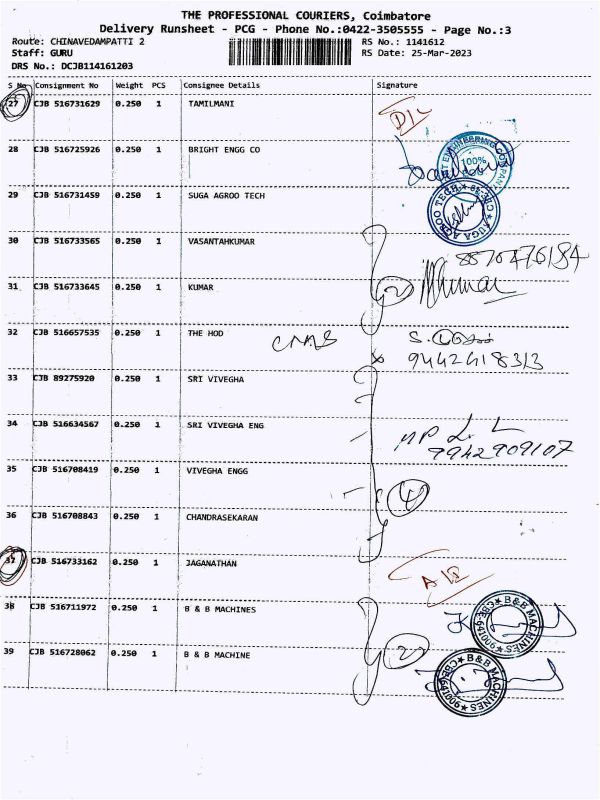 THE PROFESSIONAL COURIERS, Coimbatore
Delivery Runsheet - PCG - Phone No.:0422-3505555 - Page No.:3
Route: CHINAVEDAMPATTI 2 RS No.: 1141612
Staff: GURU RS Date: 25-Mar-2023
DRS No.: DCJB114161203
S No Consignment No Weight PCS Consignee Details Signature
27 CJB 516731629 0.250 1 TAMILMANI D/L
28 CJB 516725926 0.250 1 BRIGHT ENGG CO
100%
29 CJB 516731459 0.250 1 SUGA AGROO TECH
30 CJB 516733565 0.250 1 VASANTAHKUMAR 8870476184
31 CJB 516733645 0.250 1 KUMAR 2 Kumar
32 CJB 516657535 0.250 1 THE HOD
9442418313
33 CJB 89275920 0.250 1 SRI VIVEGHA
34 CJB 516634567 0.250 1 SRI VIVEGHA ENG
9942909107
35 CJB 516708419 0.250 1 VIVEGHA ENGG 4
36 CJB 516708843 0.250 1 CHANDRASEKARAN
37 CJB 516733162 0.250 1 JAGANATHAN
38 CJB 516711972 0.250 1 B & B MACHINES
B&B MACHINES
39 CJB 516728062 0.250 1 B & B MACHINE 2
B&B MACHINES